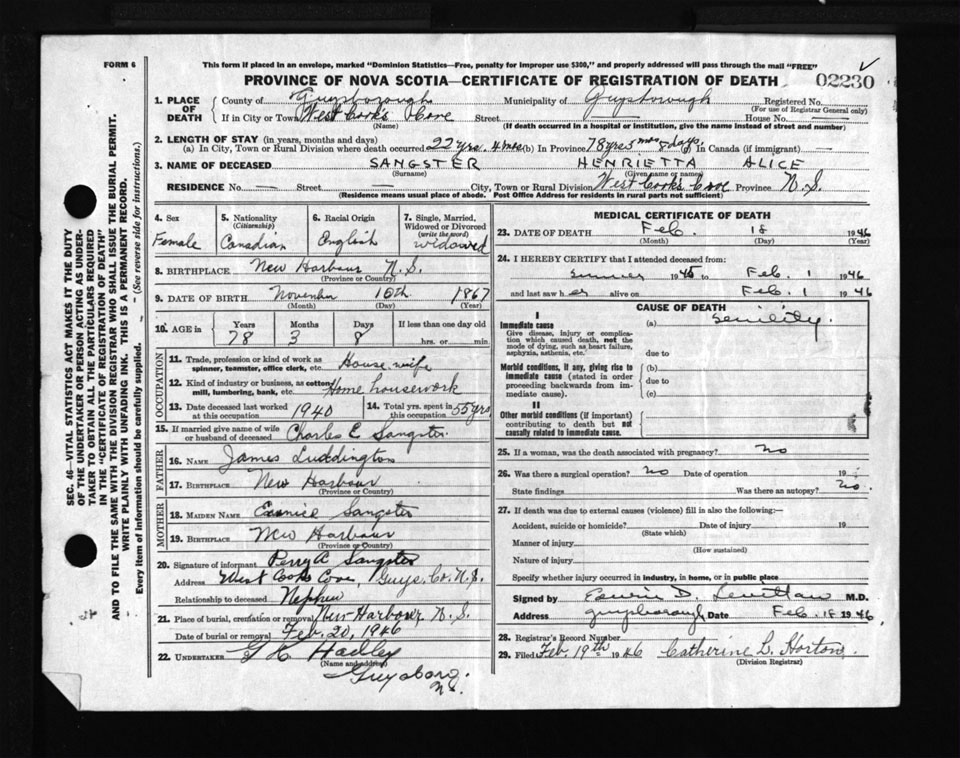 FORM 6
This form if placed in an envelope, marked "Dominion Statistics—Free, penalty for improper use $300," and properly addressed will pass through the mail "FREE"
PROVINCE OF NOVA SCOTIA—CERTIFICATE OF REGISTRATION OF DEATH
02230
1. PLACE OF DEATH
County of Guysborough Municipality of Guysborough Registered No.
(For use of Registrar General only)
If in City or Town West Cooks Cove Street — House No. —
(Name) (If death occurred in a hospital or institution, give the name instead of street and number)
2. LENGTH OF STAY (in years, months and days)
(a) In City, Town or Rural Division where death occurred 22 yrs. 4 mos (b) In Province 78 yrs 3 mos 8 days (c) In Canada (if immigrant) —
3. NAME OF DECEASED SANGSTER HENRIETTA ALICE
(Surname) (Given name or names)
RESIDENCE No. — Street — City, Town or Rural Division West Cooks Cove Province N.S.
(Residence means usual place of abode. Post Office Address for residents in rural parts not sufficient)
4. Sex
Female
5. Nationality
(Citizenship)
Canadian
6. Racial Origin
English
7. Single, Married, Widowed or Divorced
(write the word)
widowed
8. BIRTHPLACE New Harbour N.S.
(Province or Country)
9. DATE OF BIRTH November 10th 1867
(Month) (Day) (Year)
10. AGE in Years Months Days If less than one day old
78 3 8 hrs. or min.
OCCUPATION
11. Trade, profession or kind of work as House wife
spinner, teamster, office clerk, etc.
12. Kind of industry or business, as cotton Home housework
mill, lumbering, bank, etc.
13. Date deceased last worked at this occupation 1940
14. Total yrs. spent in this occupation 55 yrs
15. If married give name of wife or husband of deceased Charles E Sangster
FATHER
16. NAME James Luddington
17. BIRTHPLACE New Harbour
(Province or Country)
MOTHER
18. MAIDEN NAME Sangster
19. BIRTHPLACE New Harbour
(Province or Country)
20. Signature of informant Perry A Sangster
Address West Cooks Cove, Guys. Co. N.S.
Relationship to deceased Nephew
21. Place of burial, cremation or removal New Harbour, N.S.
Date of burial or removal Feb. 20, 1946
22. UNDERTAKER G H Hadley
(Name and address)
Guysboro.
N.S.
MEDICAL CERTIFICATE OF DEATH
23. DATE OF DEATH Feb. 18 1946
(Month) (Day) (Year)
24. I HEREBY CERTIFY that I attended deceased from:
summer 1945 to Feb. 1 1946
and last saw her alive on Feb. 1 1946
CAUSE OF DEATH
I
Immediate cause (a) senility.
Give disease, injury or complication which caused death, not the mode of dying, such as heart failure, asphyxia, asthenia, etc.
due to
Morbid conditions, if any, giving rise to immediate cause (stated in order proceeding backwards from immediate cause).
(b)
due to
(c)
II
Other morbid conditions (if important) contributing to death but not causally related to immediate cause.
25. If a woman, was the death associated with pregnancy? no
26. Was there a surgical operation? no Date of operation 19
State findings Was there an autopsy? no.
27. If death was due to external causes (violence) fill in also the following:—
Accident, suicide or homicide? Date of injury 19
(State which)
Manner of injury
(How sustained)
Nature of injury
Specify whether injury occurred in industry, in home, or in public place
Signed by D. M.D.
Address Guysborough Date Feb. 18 1946
28. Registrar's Record Number
29. Filed Feb. 19th 1946 Catherine L. Horton.
(Division Registrar)
SEC. 46—VITAL STATISTICS ACT MAKES IT THE DUTY
OF THE UNDERTAKER OR PERSON ACTING AS UNDER-
TAKER TO OBTAIN ALL THE PARTICULARS REQUIRED
IN THE "CERTIFICATE OF REGISTRATION OF DEATH"
AND TO FILE THE SAME WITH THE DIVISION REGISTRAR WHO SHALL ISSUE THE BURIAL PERMIT.
WRITE PLAINLY WITH UNFADING INK. THIS IS A PERMANENT RECORD.
Every item of information should be carefully supplied. — (See reverse side for instructions.)